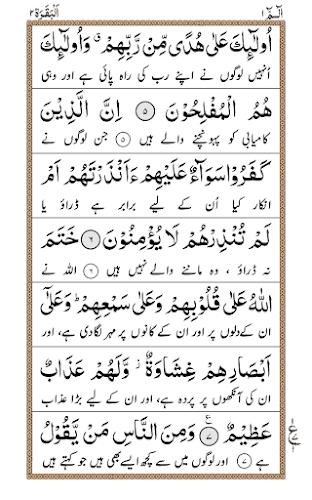 الٓمّٓ ١
اَلْبَقَرَة ٢
اُولٰٓئِكَ عَلٰى هُدًى مِّنْ رَّبِّهِمْ ۗ وَاُولٰٓئِكَ
اُنہیں لوگوں نے اپنے رب کی راہ پائی ہے اور وہی
هُمُ الْمُفْلِحُوْنَ ۝٥ اِنَّ الَّذِيْنَ
کامیابی کو پہونچنے والے ہیں ۝٥ جن لوگوں نے
كَفَرُوْا سَوَآءٌ عَلَيْهِمْ ءَاَنْذَرْتَهُمْ اَمْ
انکار کیا اُن کے لیے برابر ہے ڈراؤ یا
لَمْ تُنْذِرْهُمْ لَا يُؤْمِنُوْنَ ۝٦ خَتَمَ
نہ ڈراؤ ، وہ ماننے والے نہیں ہیں ۝٦ اللہ نے
اللّٰهُ عَلٰى قُلُوْبِهِمْ وَعَلٰى سَمْعِهِمْ ؕ وَعَلٰٓى
ان کے دلوں پر اور ان کے کانوں پر مہر لگا دی ہے، اور
اَبْصَارِهِمْ غِشَاوَةٌ ؗ وَّلَهُمْ عَذَابٌ
ان کی آنکھوں پر پردہ ہے، اور ان کے لیے بڑا عذاب
عَظِيْمٌ ۝٧ وَمِنَ النَّاسِ مَنْ يَّقُوْلُ
ہے ۝٧ اور لوگوں میں سے کچھ ایسے بھی ہیں جو کہتے ہیں